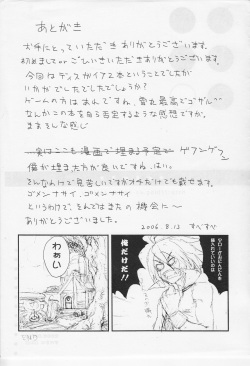 あとがき
お手にとっていただきありがとうございます。
初めましてorごしいさいただきありがとうございます。
今回はディスガイア2本ということでしたが
いかがでしたでしたでしょうか?
ゲームの方はあれですね、雪丸最高でござる。
なんかこの本を自ら否定するような感想ですが。
まあそんな感じ
実はここも漫画で埋まる予定
ゲフンゲフン
僕が埋また方が良いですね、はい。
そんなわけで見苦しいですがオチだけでも載せます。
ゴメンナサイ、ゴメンナサイ
というわけで、それではまたの機会に〜
ありがとうございました。
2006.8.12 すぺすぺ
俺だけだ!!
わぁい